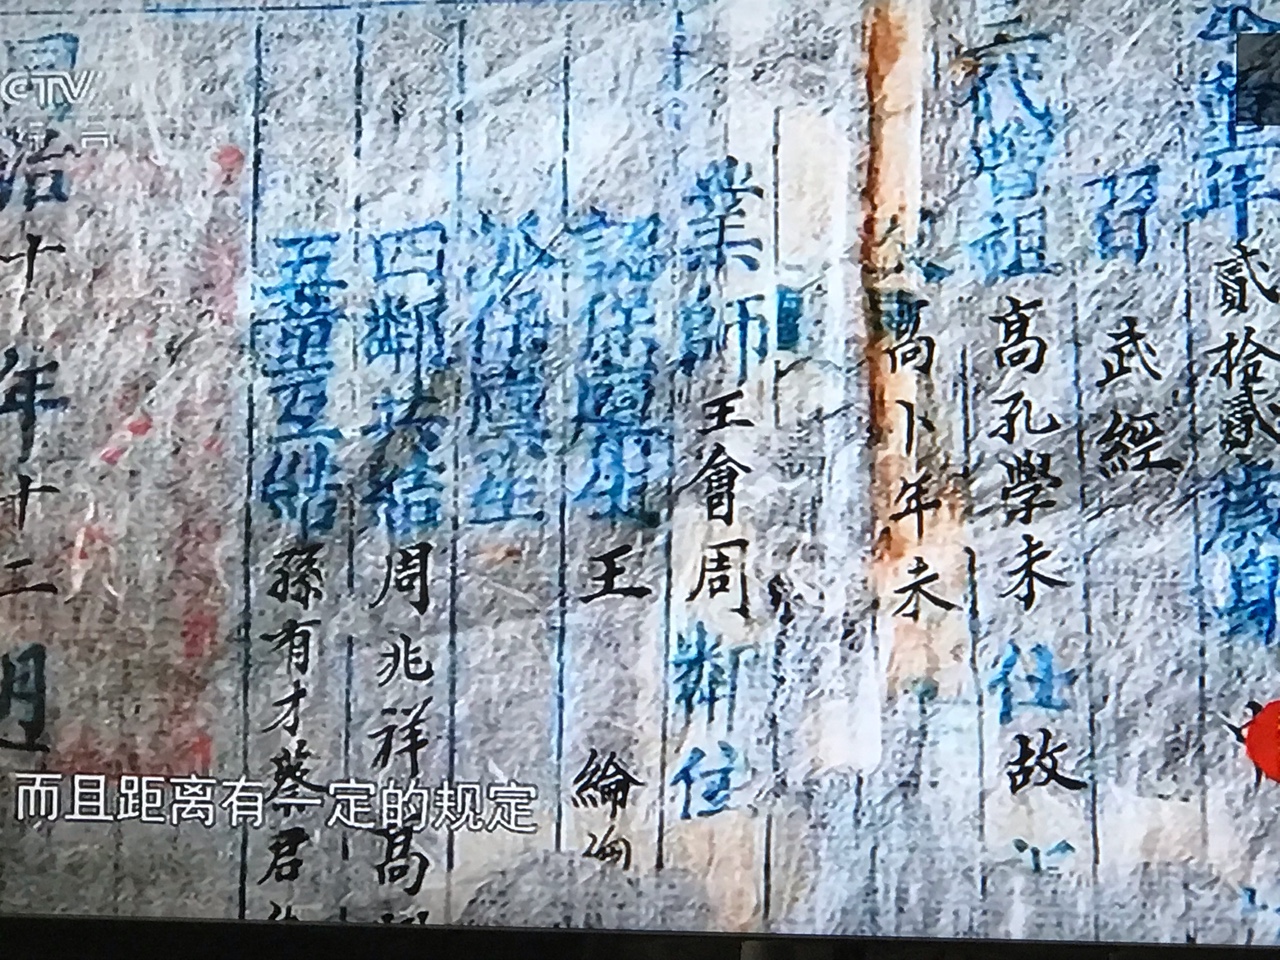 年貳拾貳歲身
習武經
三代曾祖高孔學未仕故
高卜年未
業師王會周鄰住
認保廩生王綸
派保廩生
四鄰共結周兆祥高
五童互結孫有才蔡君
同治十年十二月
CCTV
而且距离有一定的规定